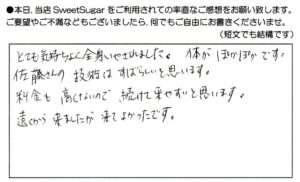 ●本日、当店SweetSugarをご利用されての率直なご感想をお願い致します。
ご要望やご不満などもございましたら、何でもご自由にお書きくださいませ。
(短文でも結構です)
とても気持ちよく全身いやされました。体がぽかぽかです。
佐藤さんの技術はすばらしいと思います。
料金も高くないので続けて来やすいと思います。
遠くから来ましたが来てよかったです。